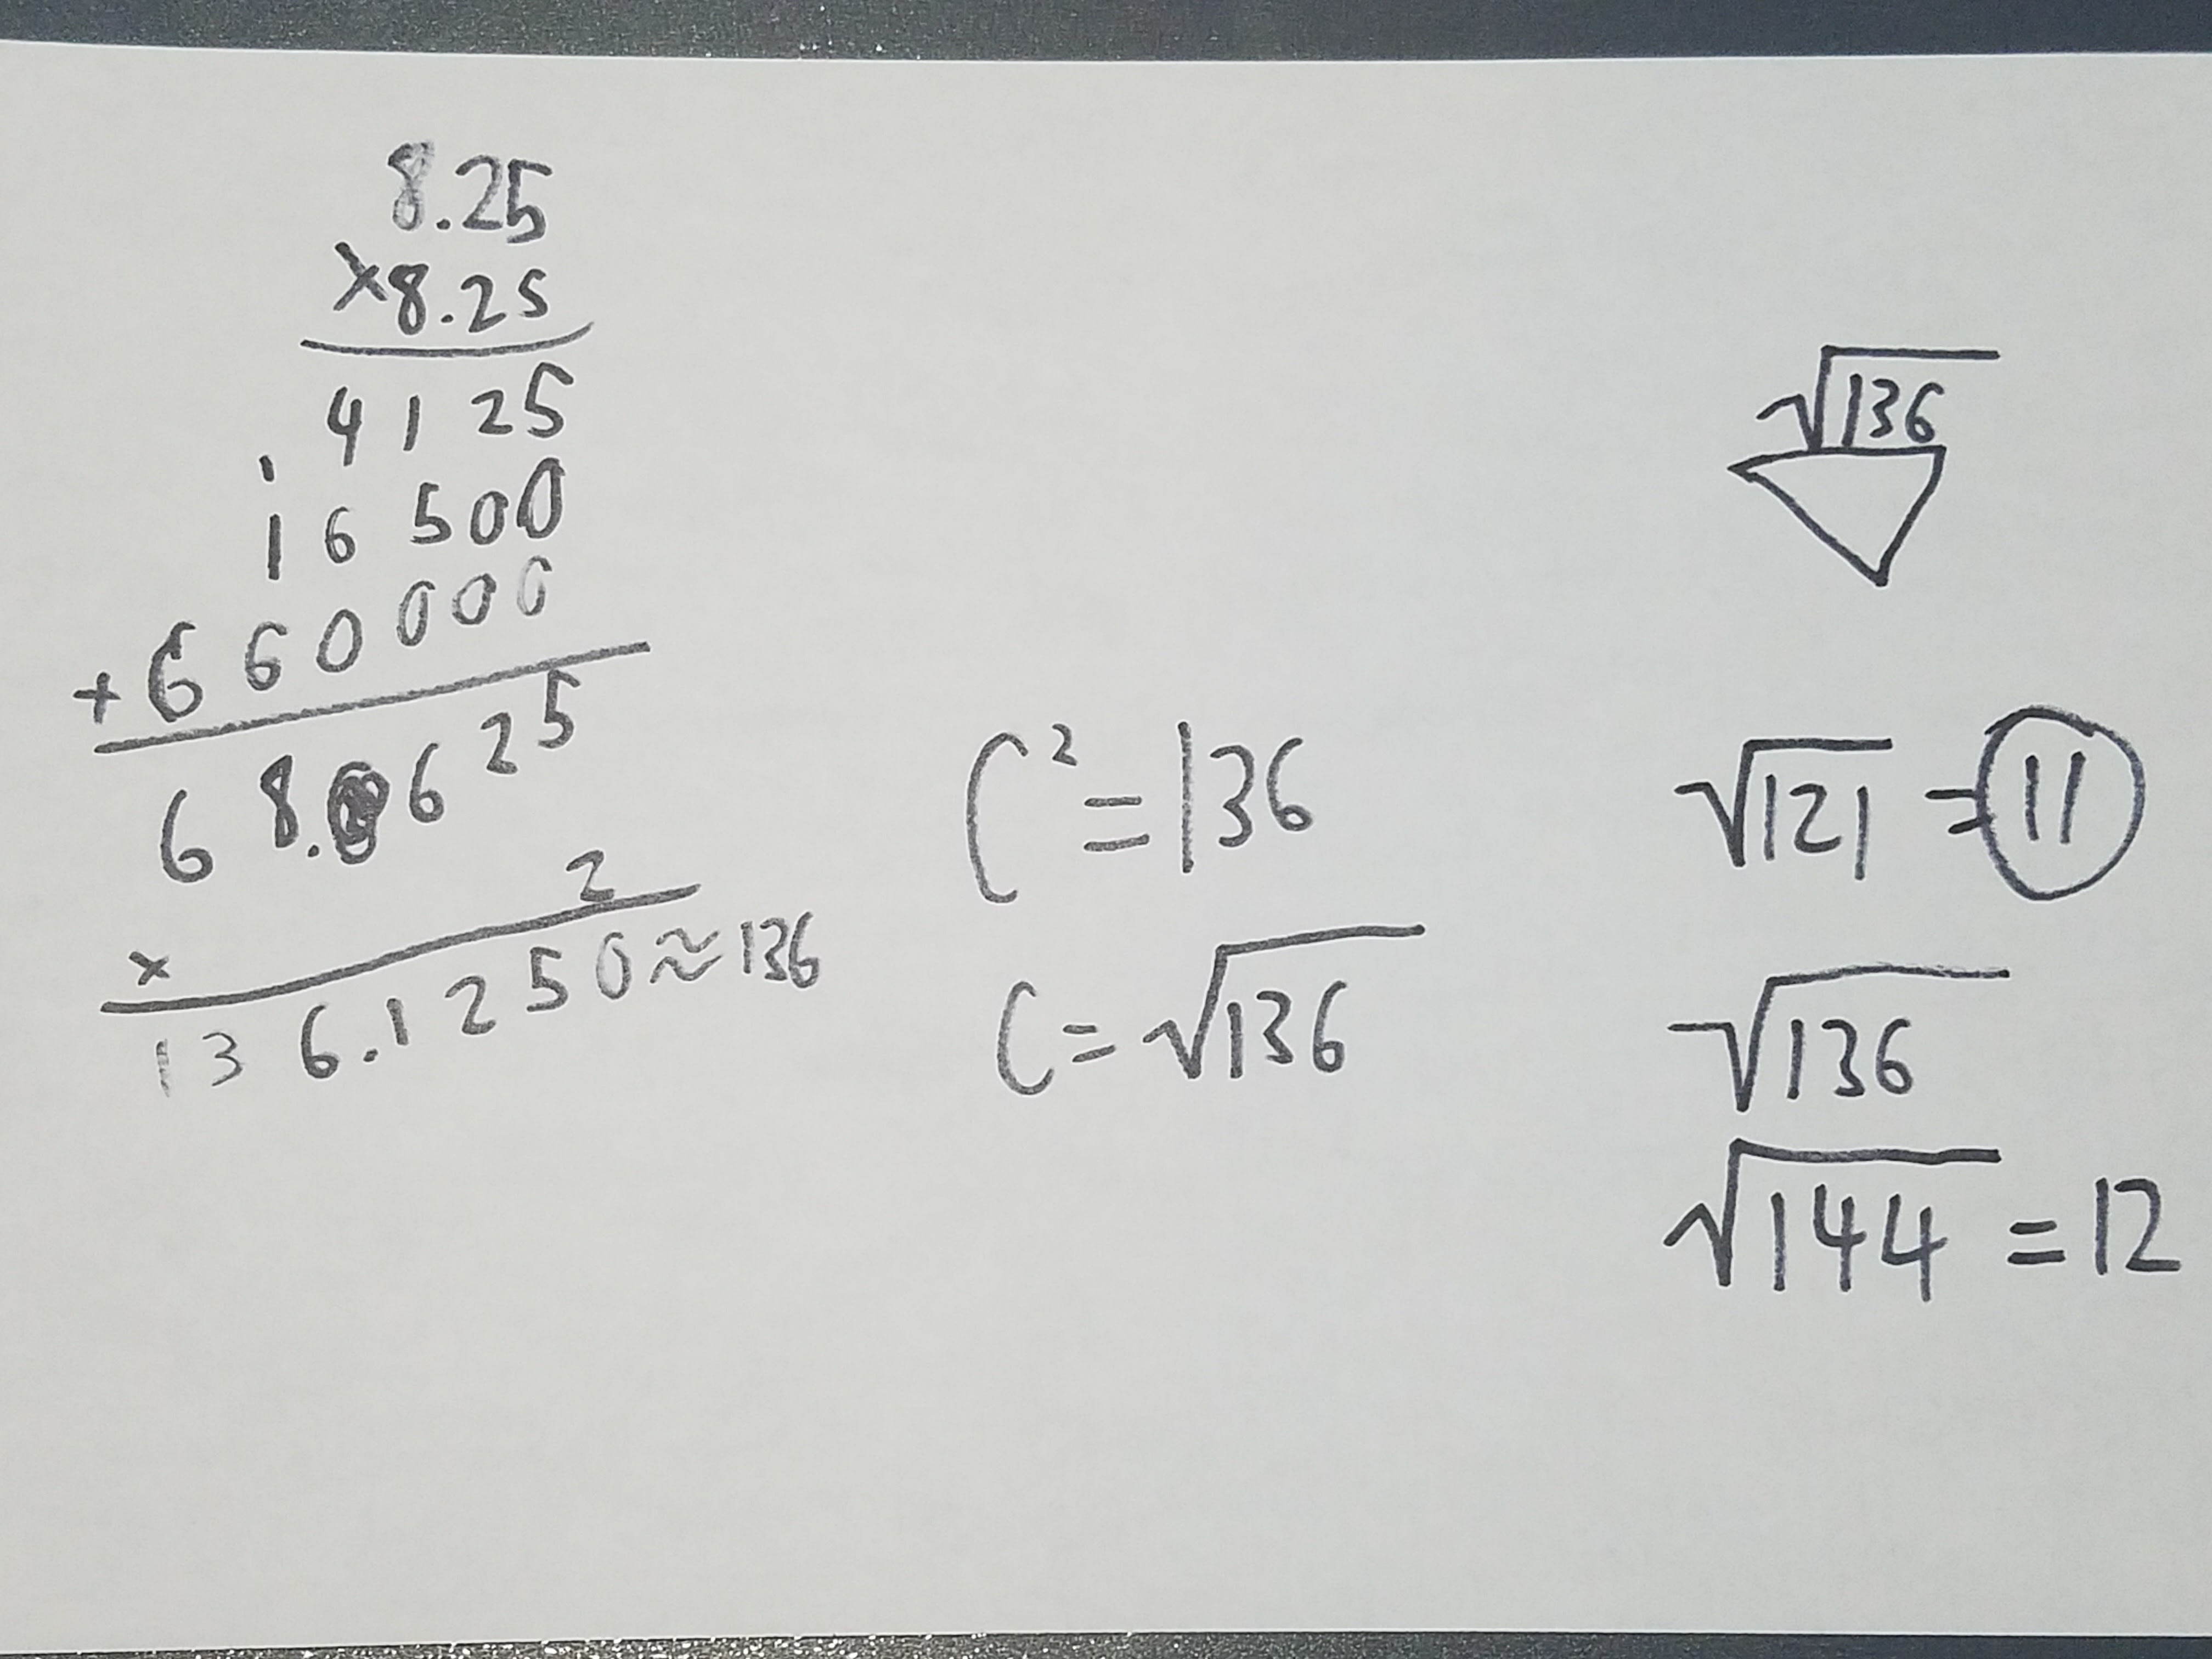 8.25
×8.25
4125
1
16500
+660000
68.0625
× 2
136.1250≈136
C²=136
C=√136
√136
√121=11
√136
√144=12